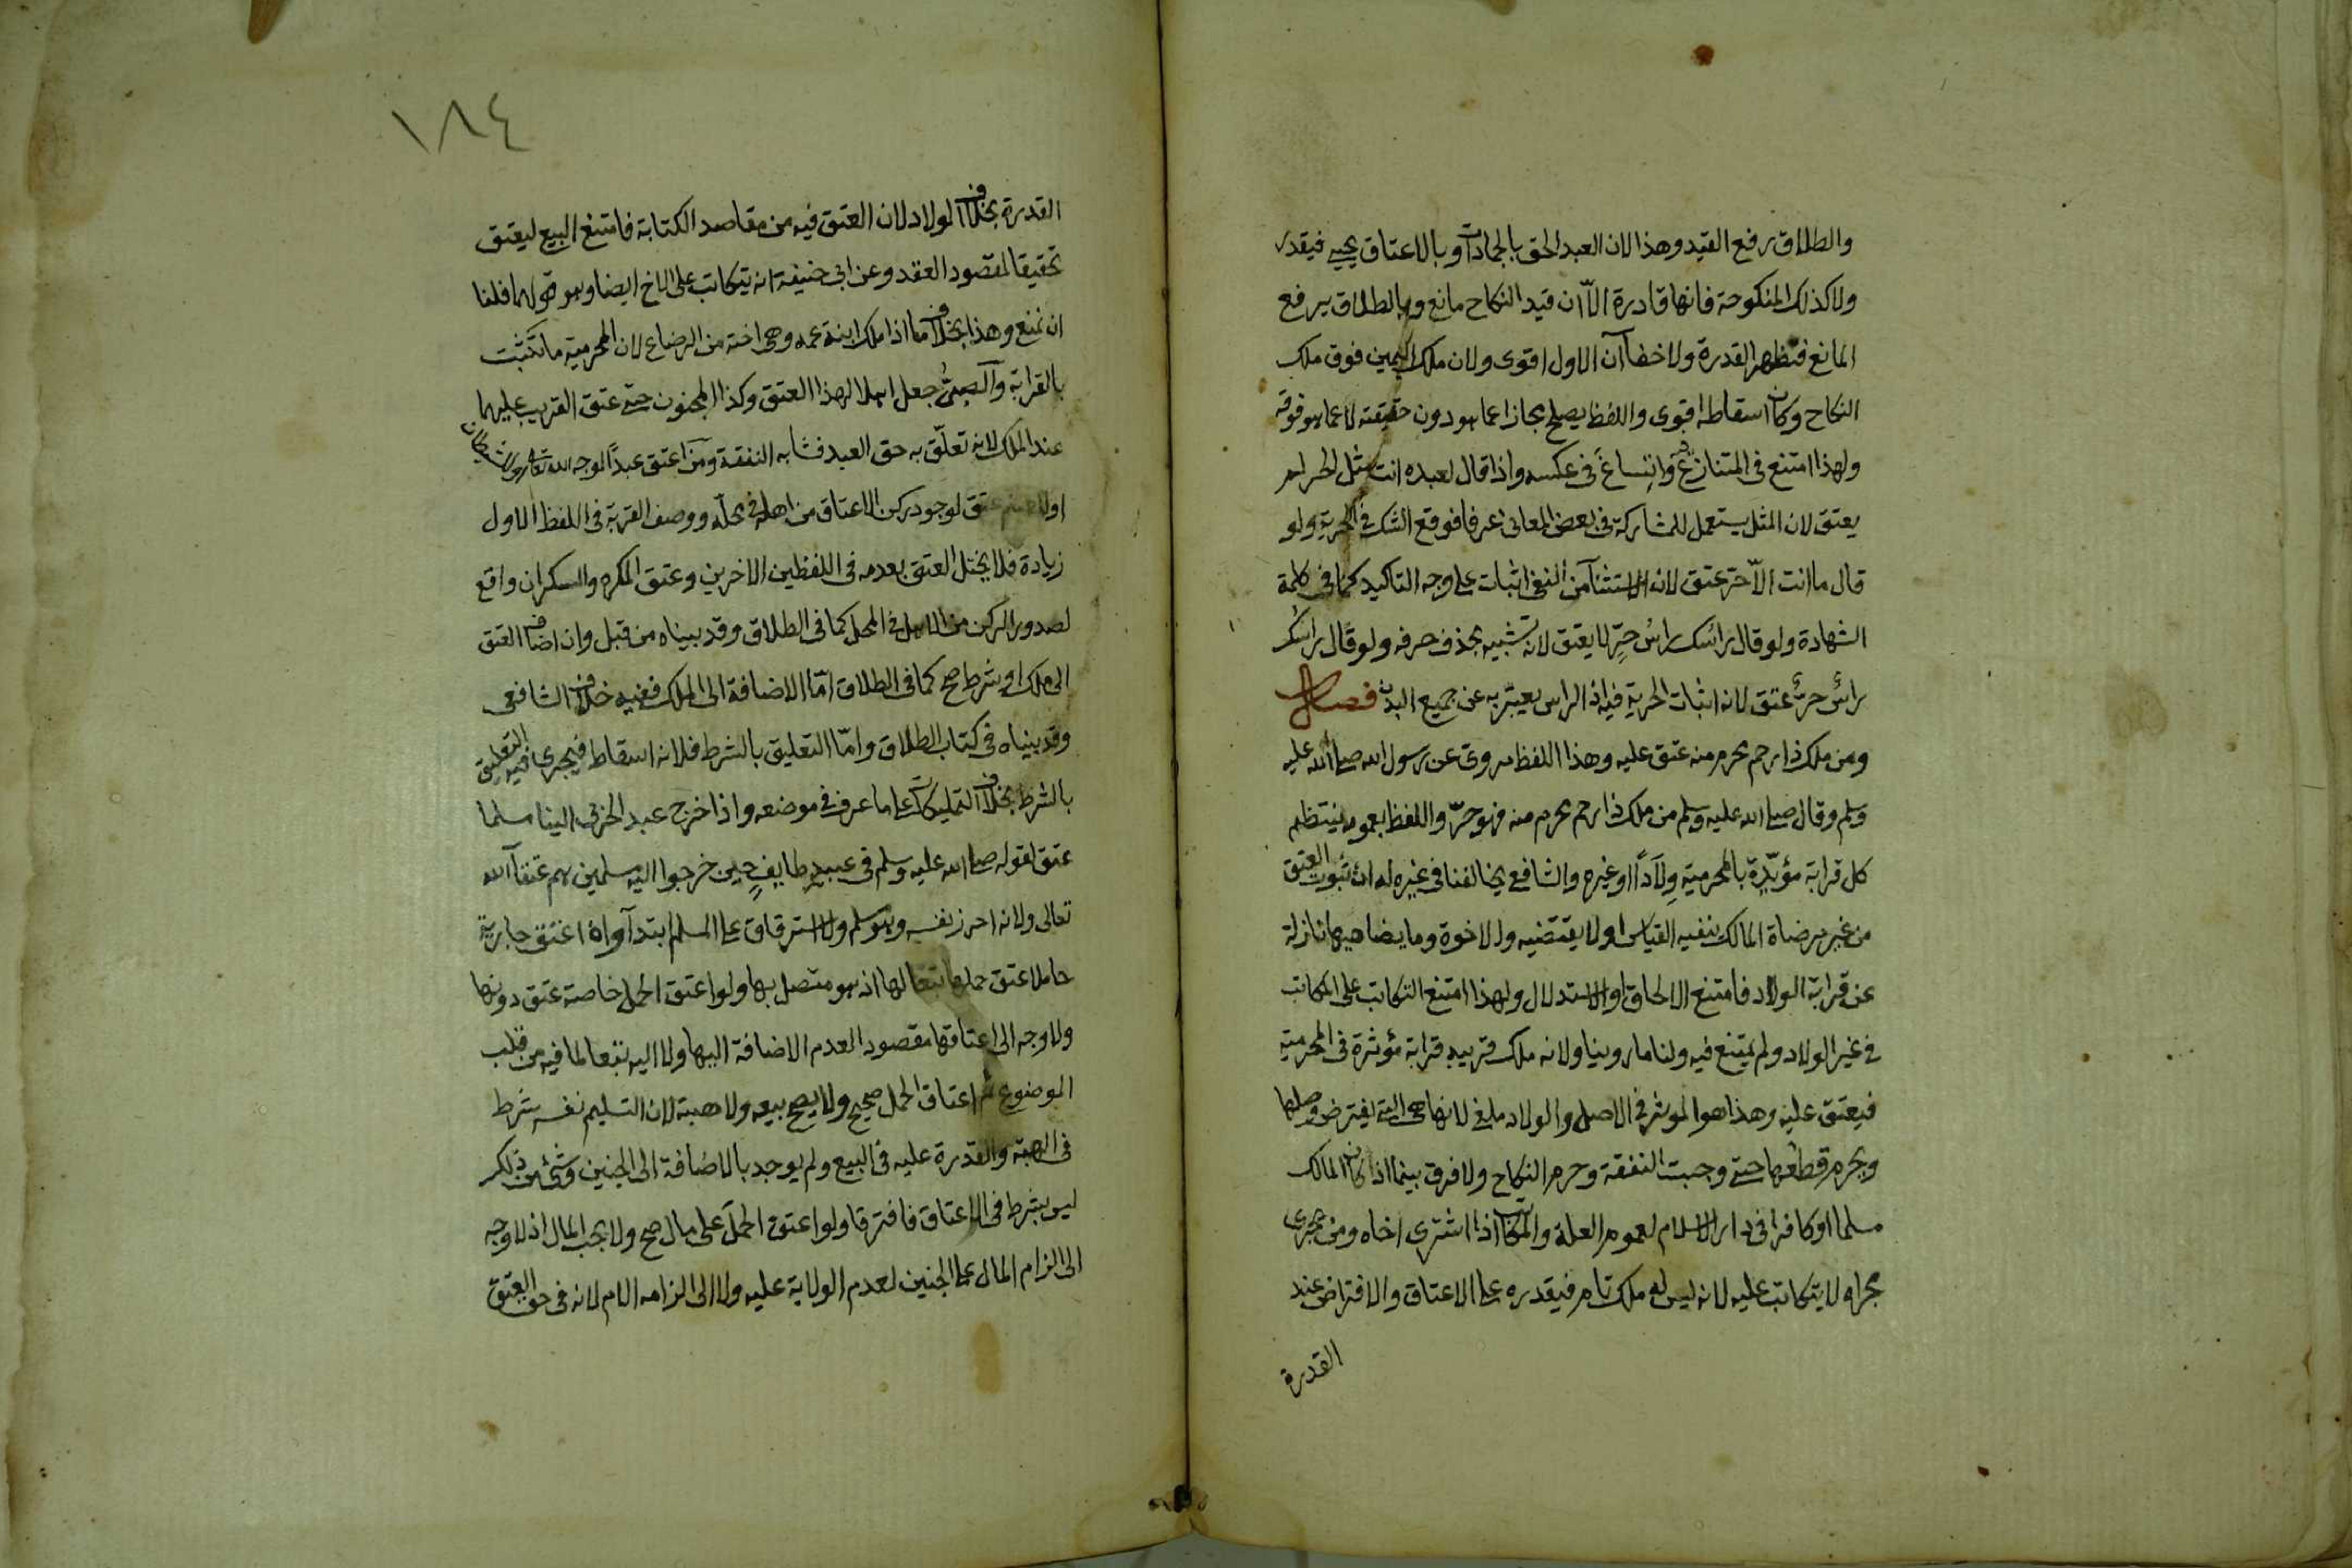 والطلاق رفع القيد وهذا لان العبد الحق بالجمادات وبالاعتاق يحيى فيقدر
ولا كذلك المنكوحة فانها قادرة الاّ ان قيد النكاح مانع وبالطلاق يرفع
المانع فتظهر القدرة ولا خفآ ان الاول اقوى ولان ملك اليمين فوق ملك
النكاح وكان اسقاطه اقوى واللفظ يصلح مجازا عما هو دون حقيقته لا عما هو فوقه
ولهذا امتنع في المتنازع فيه وانساغ في عكسه واذا قال لعبده انت مثل الحر لم
يعتق لان المثل يستعمل للمشاركة في بعض المعاني عرفا فوقع الشك في الحرية ولو
قال ما انت الاّ حر عتق لان الاستثنآ من النفي اثبات على وجه التاكيد كما في كلمة
الشهادة ولو قال رأسك رأس حرٍّ لا يعتق لانه تشبيه بحذف حرفه ولو قال راسك
رأس حرٌّ عتق لانه اثبات الحرية فيه اذ الراس يعبّر به عن جميع البدن فصل
ومن ملك ذا رحم محرم منه عتق عليه وهذا اللفظ مروي عن رسول الله صلى الله عليه
وسلم وقال صلى الله عليه وسلم من ملك ذا رحم محرم منه فهو حرّ واللفظ بعمومه ينتظم
كل قرابة مؤبّدة بالمحرمية وِلاَدًا او غيره والشافعي يخالفنا في غيره له ان ثبوت العتق
من غير مرضاة المالك ينفيه القياس او لا يقتضيه والاخوة وما يضاهيها نازلة
عن قرابة الولاد فامتنع الالحاق او الاستدلال ولهذا امتنع التكاتب على المكاتب
في غير الولاد ولم يمتنع فيه ولنا ما روينا ولانه ملك قريبه قرابة مؤثرة في المحرمية
فيعتق عليه وهذا هو المؤثر في الاصل والولاد ملغى لانها هي التي يفترض وصلها
ويحرم قطعها حتى وجبت النفقة وحرم النكاح ولا فرق بينما اذا كان المالك
مسلما او كافرا في دار الاسلام لعموم العلة والمكاتب اذا اشترى اخاه ومن يجرى
مجراه لا يتكاتب عليه لانه ليس له ملك تام فيقدره على الاعتاق والافتراض عند
القدرة
١٨٤
القدرة بخلاف الولاد لان العتق فيه من مقاصد الكتابة فامتنع البيع ليعتق
تحقيقا لمقصود العقد وعن ابي حنيفة انه يتكاتب على الاخ ايضا وهو قولهما فلنا
ان نمنع وهذا بخلاف ما اذا ملك ابنة عمه وهي اخته من الرضاع لان المحرمية ما ثبتت
بالقرابة والصبيُّ جعل اهلا لهذا العتق وكذا المجنون حتى عتق القريب عليهما
عند الملك لانه تعلّق به حق العبد فشابه النفقة ومن اعتق عبدًا لوجه الله تعالى او للشيطان
او للصنم عتق لوجود ركن الاعتاق من اهله في محلّه ووصف القربة في اللفظ الاول
زيادة فلا يختل العتق بعدمه في اللفظين الاخرين وعتق المكره والسكران واقع
لصدور الركن من الاهل في المحل كما في الطلاق وقد بيناه من قبل وان اضاف العتق
الى ملك او شرط صح كما في الطلاق امّا الاضافة الى الملك ففيه خلاف الشافعي
وقد بيناه في كتاب الطلاق وامّا التعليق بالشرط فلانه اسقاط فيجري فيه التعليق
بالشرط بخلاف التمليكات على ما عرف في موضعه واذا خرج عبد الحربي الينا مسلما
عتق لقوله صلى الله عليه وسلم في عبيدِ طايفٍ حين خرجوا اليه مسلمين هم عتقآ الله
تعالى ولانه احرز نفسه وهو مسلم ولا استرقاق على المسلم ابتدآ واذا اعتق جارية
حاملا عتق حملها تبعا لها اذ هو متصل بها ولو اعتق الحمل خاصة عتق دونها
ولا وجه الى اعتاقها مقصودا لعدم الاضافة اليها ولا اليه تبعا لما فيه من قلب
الموضوع ثم اعتاق الحمل صحيح ولا يصح بيعه ولا هبته لان التسليم نفسه شرط
في الهبة والقدرة عليه في البيع ولم يوجد بالاضافة الى الجنين وشئ من ذلك
ليس بشرط في الاعتاق فافترقا ولو اعتق الحمل على مال صح ولا يجب المال اذ لا وجه
الى الزام المال على الجنين لعدم الولاية عليه ولا الى الزامه الام لانه في حق العتق